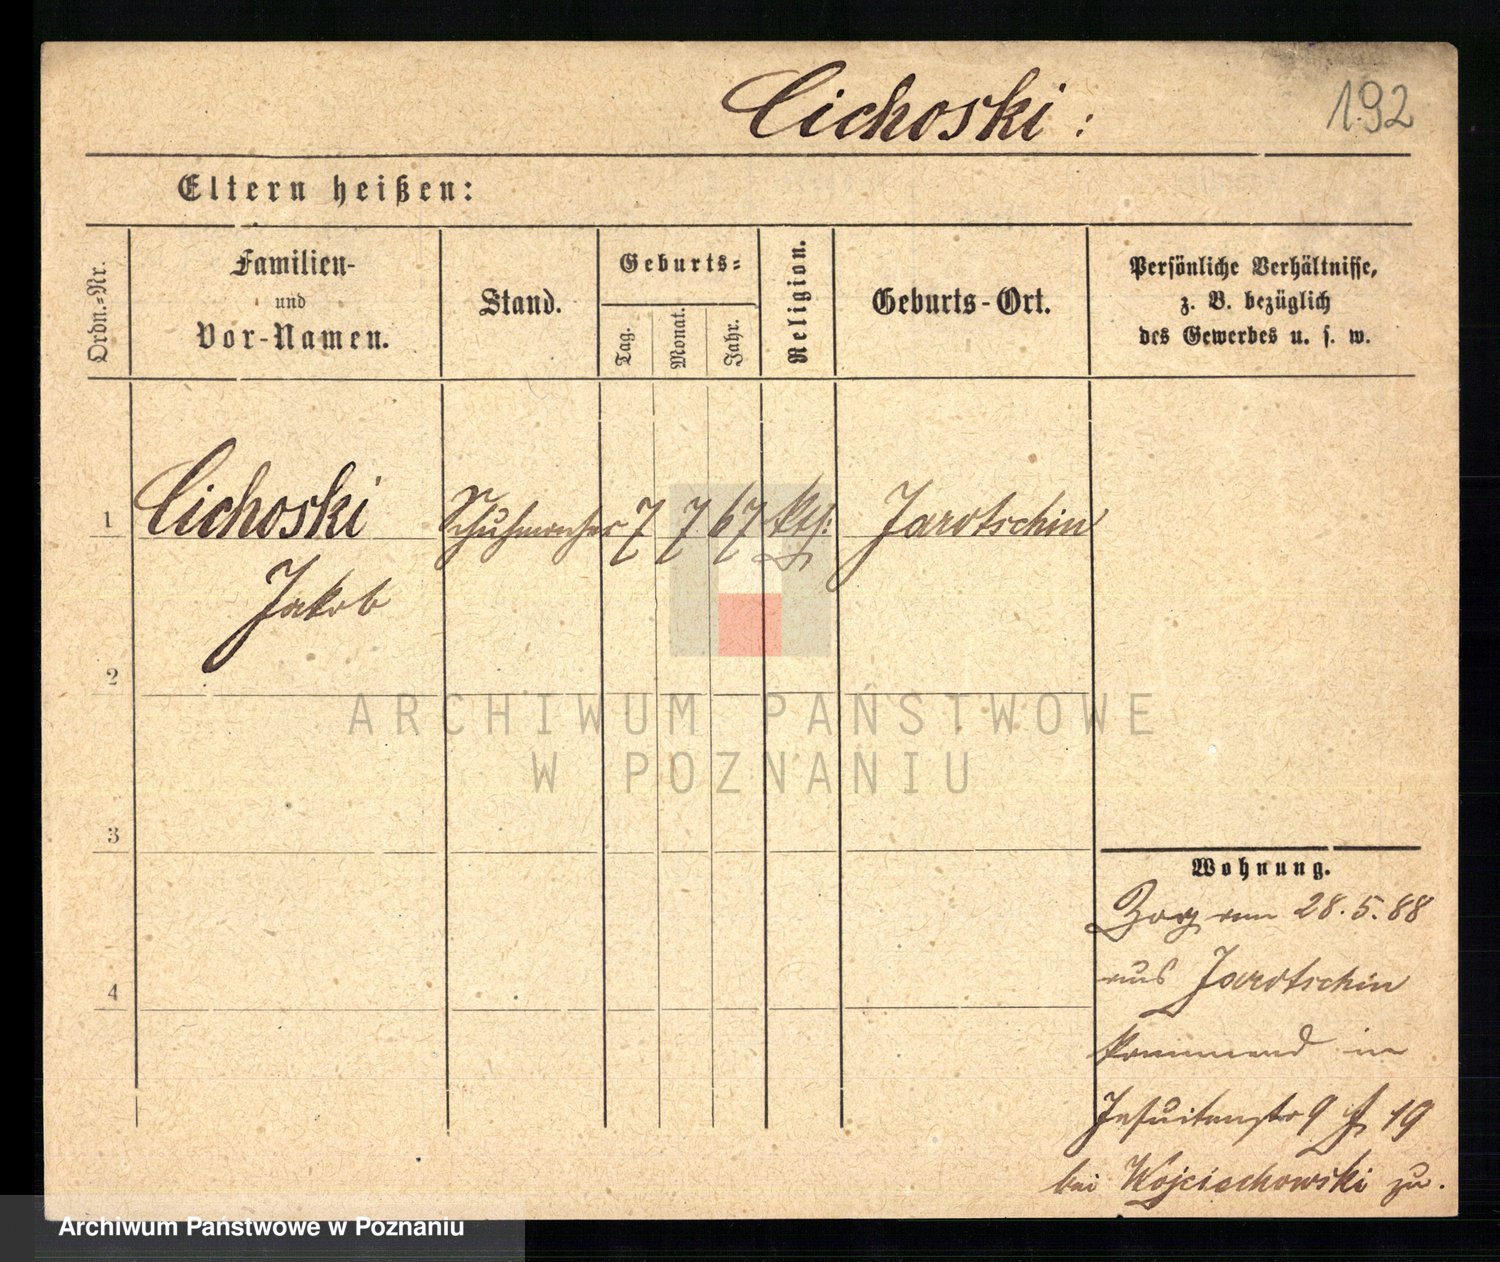 Cichoski:
192
Eltern heißen:
Ordn.=Nr.
Familien-
und
Vor-Namen.
Stand.
Geburts=
Tag.
Monat.
Jahr.
Religion.
Geburts-Ort.
Persönliche Verhältnisse,
z. B. bezüglich
des Gewerbes u. s. w.
1 Cichoski Schuhmacher 7 7 67 kth: Jarotschin
Jakob
2
3
4
Wohnung.
Zog am 28.5.88
aus Jarotschin
kommend in
Jesuitenstr 9 19
bei Wojciechowski zu.
ARCHIWUM PAŃSTWOWE
W POZNANIU
Archiwum Państwowe w Poznaniu